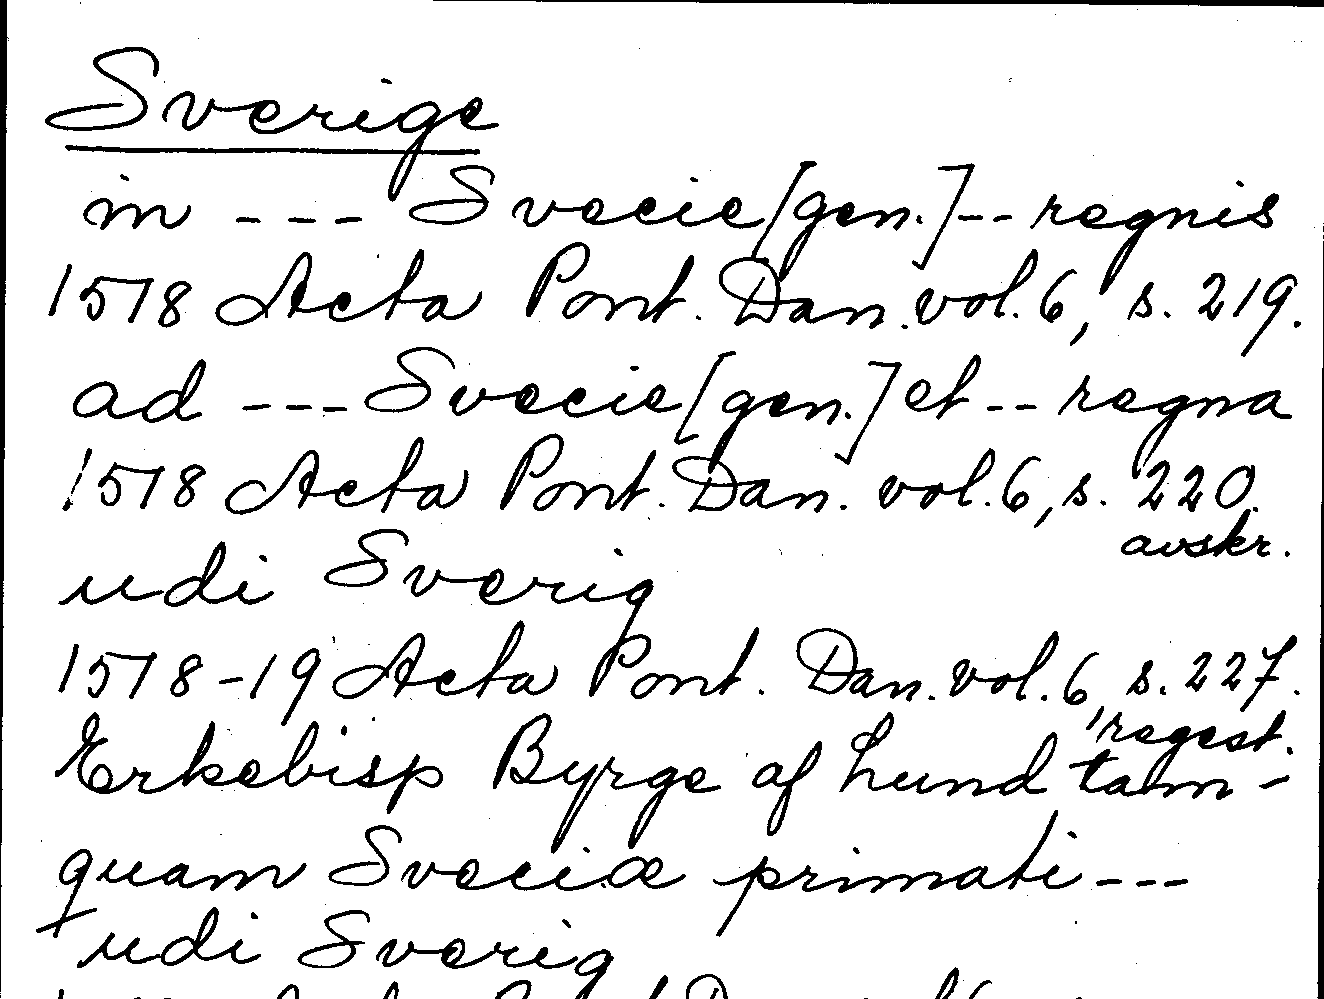 Sverige
in --- Svecie [gen.] -- regnis
1518 Acta Pont. Dan. vol. 6, s. 219.
ad --- Svecie [gen.] et -- regna
1518 Acta Pont. Dan. vol. 6, s. 220.
avskr.
udi Sverig
1518-19 Acta Pont. Dan. vol. 6, s. 227.
regest.
Erkebisp Byrge af Lund tam-
quam Sveciæ primati ---
udi Sverig